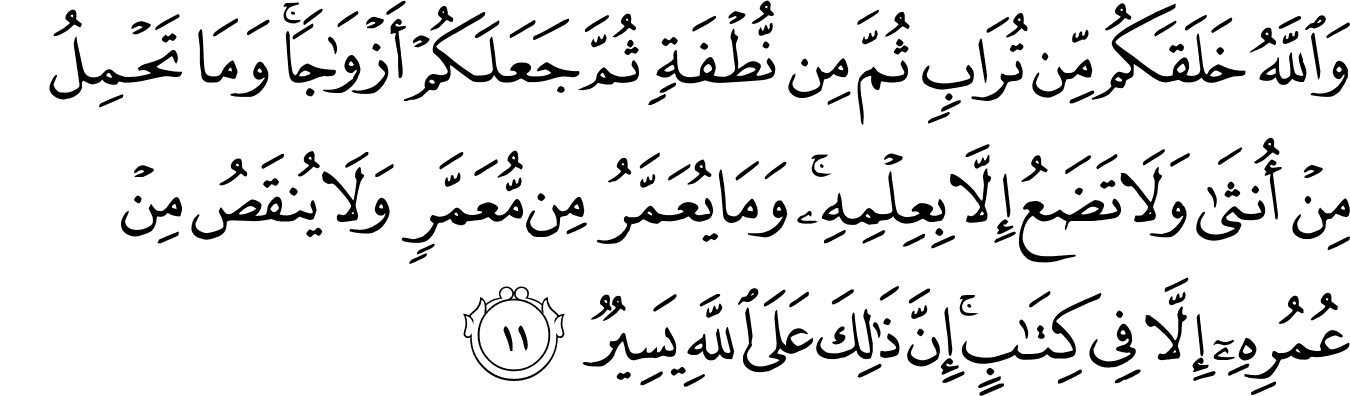 وَٱللَّهُ خَلَقَكُم مِّن تُرَابٖ ثُمَّ مِن نُّطۡفَةٖ ثُمَّ جَعَلَكُمۡ أَزۡوَٰجٗاۚ وَمَا تَحۡمِلُ
مِنۡ أُنثَىٰ وَلَا تَضَعُ إِلَّا بِعِلۡمِهِۦۚ وَمَا يُعَمَّرُ مِن مُّعَمَّرٖ وَلَا يُنقَصُ مِنۡ
عُمُرِهِۦٓ إِلَّا فِي كِتَٰبٍۚ إِنَّ ذَٰلِكَ عَلَى ٱللَّهِ يَسِيرٞ ١١